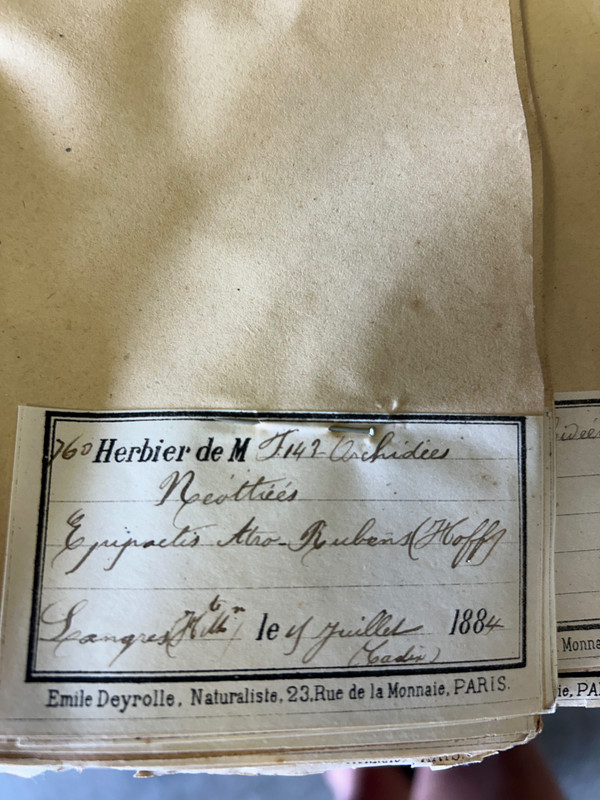 760 Herbier de M F. 142 Orchidées
Néottiées
Epipactis Atro-Rubens (Hoff)
Langres (Hte Mne) le Juillet 1884
Emile Deyrolle, Naturaliste, 23, Rue de la Monnaie, PARIS.
Monna
ie, PA